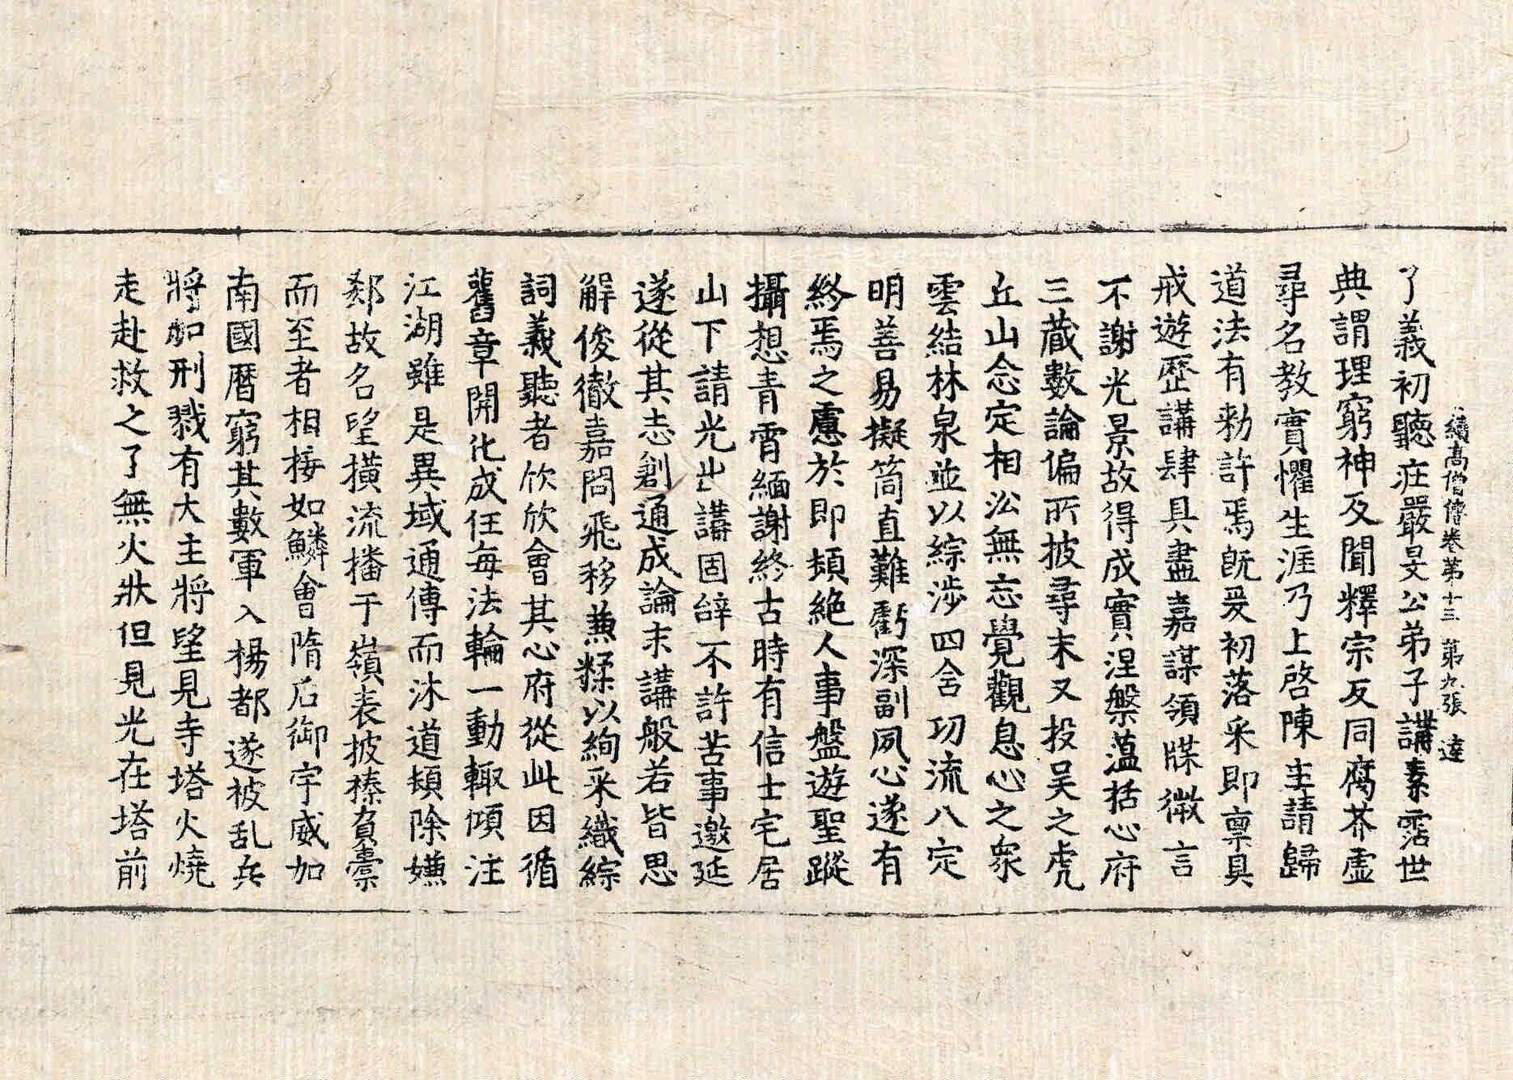 續高僧傳卷第十三 第九張 達
了義初聽莊嚴旻公弟子講素霑世
典謂理窮神及聞釋宗反同腐芥虛
尋名教實懼生涯乃上啓陳主請歸
道法有勑許焉旣爰初落采即稟具
戒遊歷講肆具盡嘉謀領牒微言
不謝光景故得成實涅槃薀括心府
三藏數論偏所披尋末又投吴之虎
丘山念定相沿無忘覺觀息心之衆
雲結林泉並以綜涉四含功流八定
明善易擬筒直難虧深副夙心遂有
終焉之慮於即頓絶人事盤遊聖蹤
攝想青霄緬謝終古時有信士宅居
山下請光出講固辝不許苦事邀延
遂從其志創通成論末講般若皆思
解俊徹嘉問飛移兼糅以絢采織綜
詞義聽者欣欣會其心府從此因循
舊章開化成任每法輪一動輙傾注
江湖雖是異域通傳而沐道頓除嫌
郄故名望橫流播于嶺表披榛負橐
而至者相接如鱗會隋后御宇威加
南國曆窮其數軍入楊都遂被乱兵
將加刑戮有大主將望見寺塔火燒
走赴救之了無火狀但見光在塔前